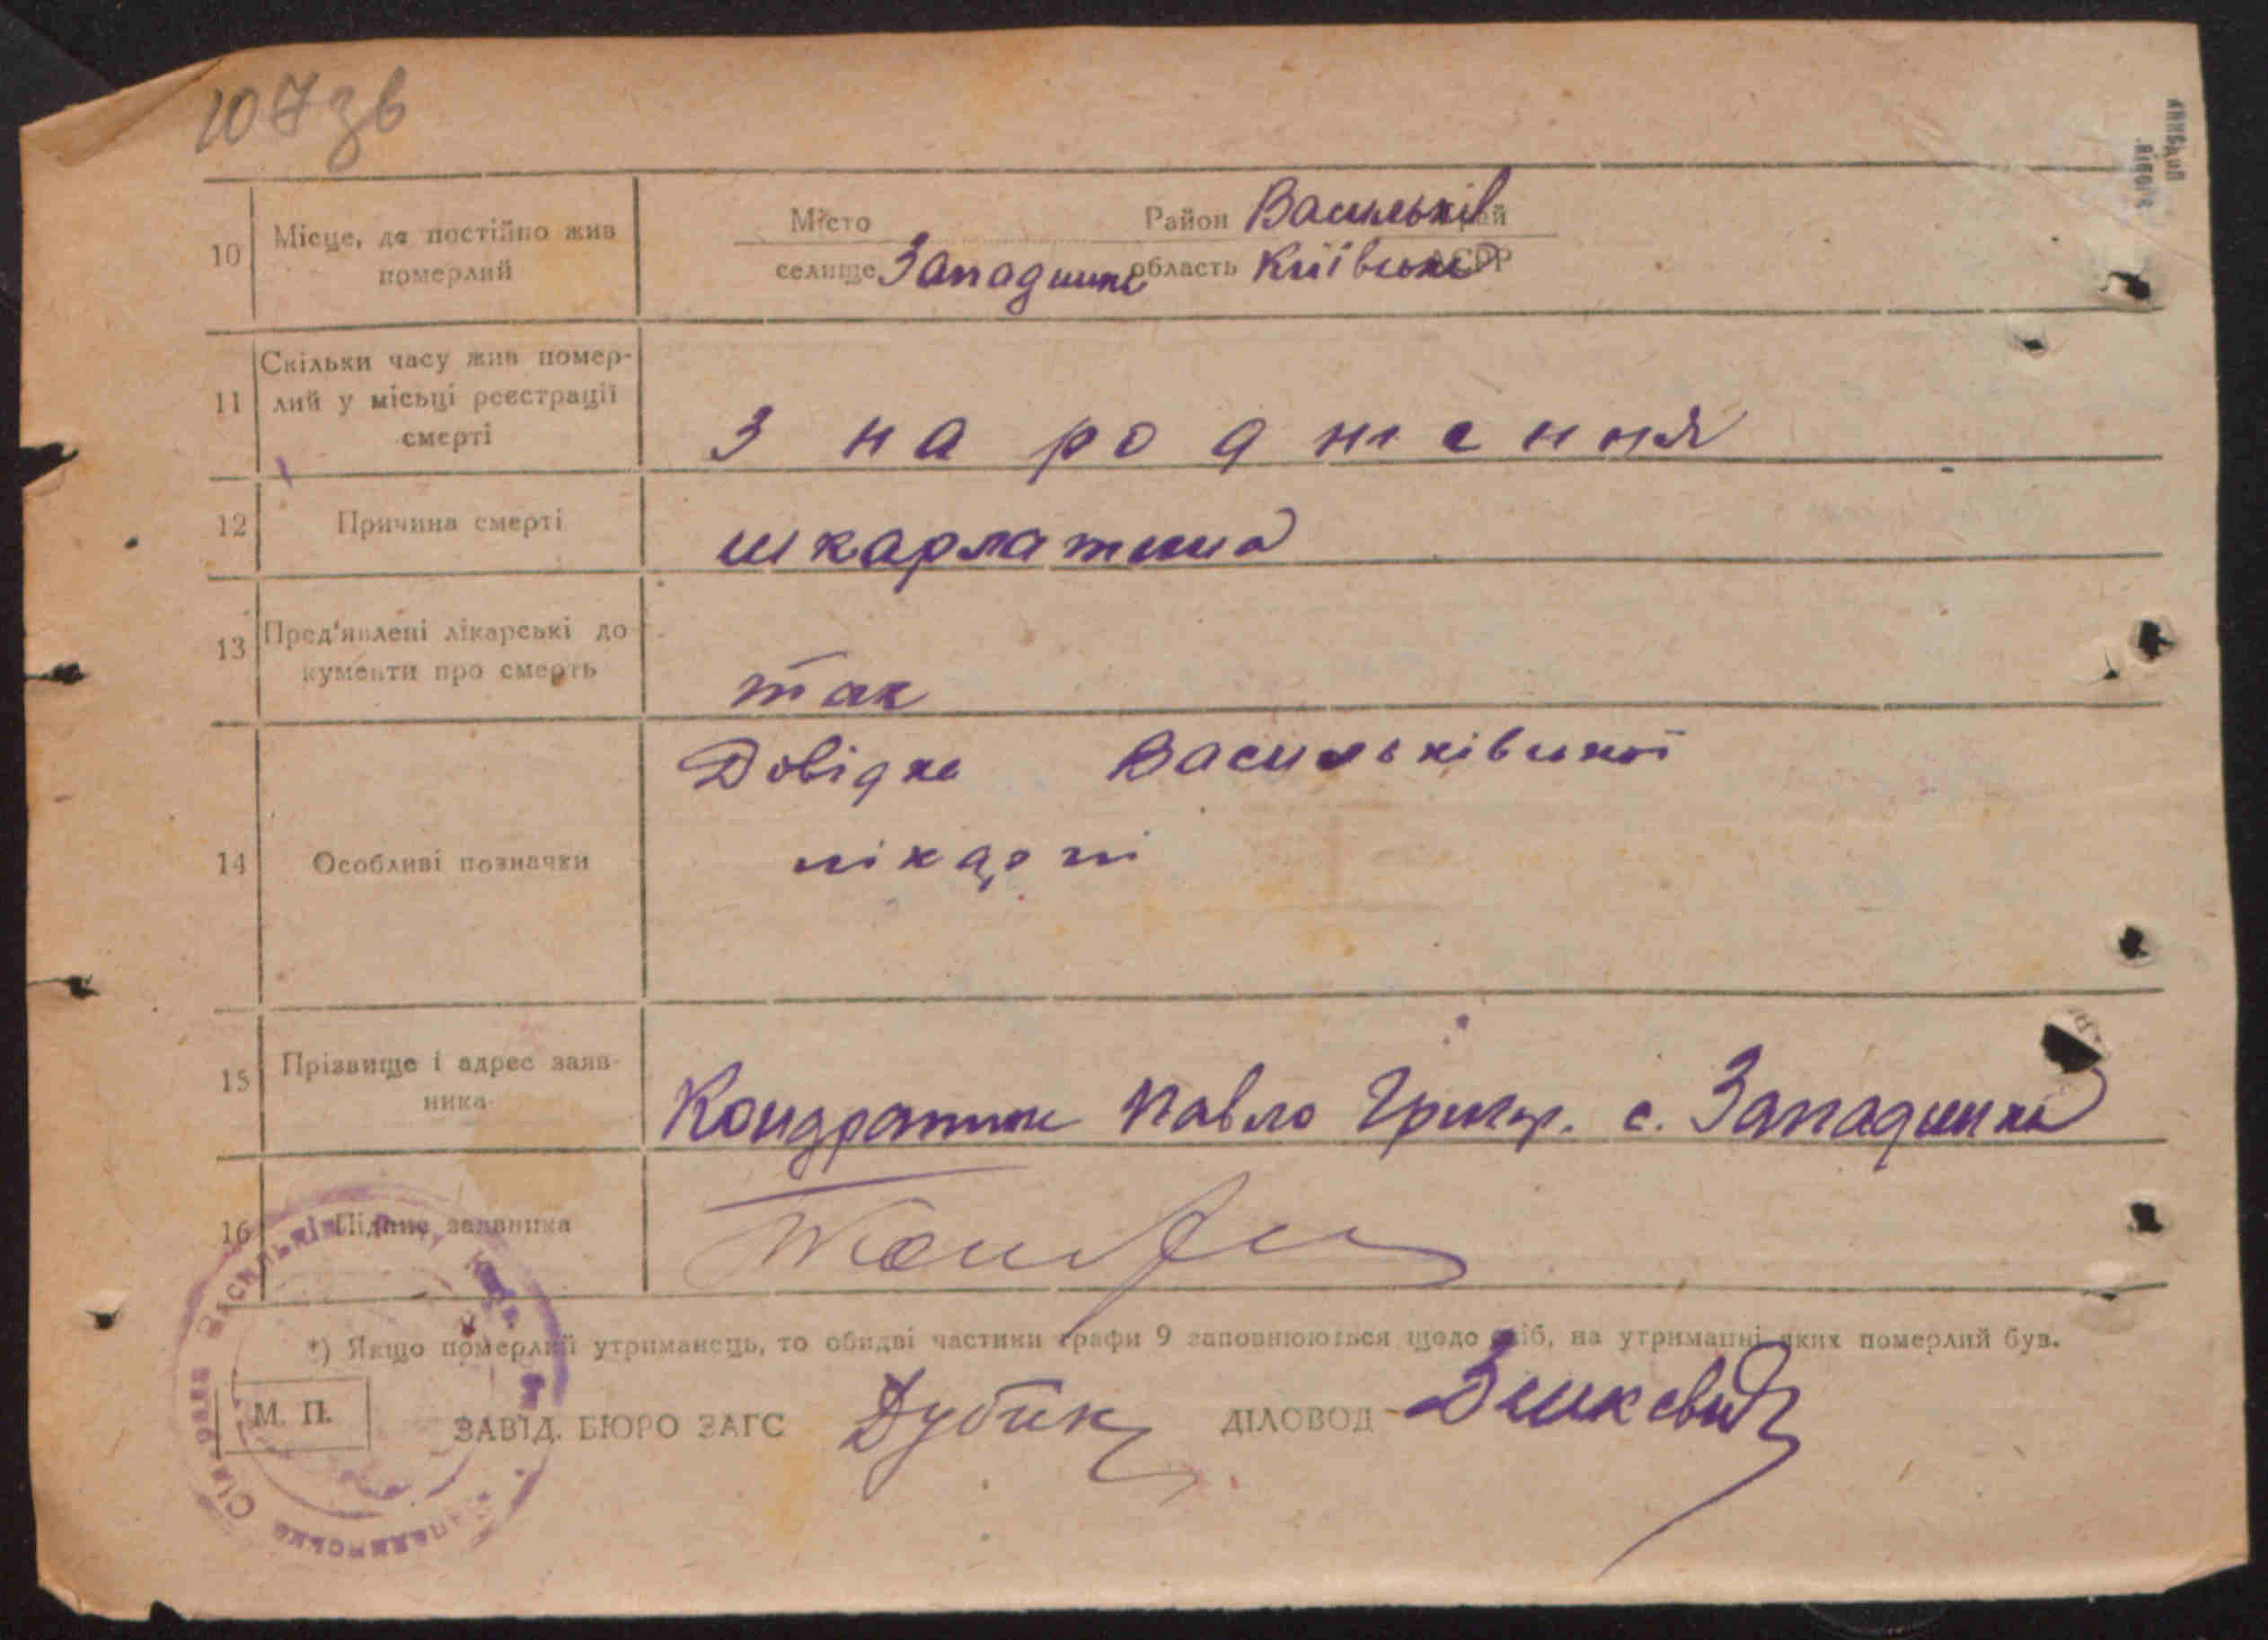 107зв
10 Місце, де постійно жив померлий
Місто Район Васильків
селище Западинка область Київська АСРР
11 Скільки часу жив помер-
лий у місьці реєстрації
смерті
З народження
12 Причина смерті
шкарлатина
13 Пред'явлені лікарські до
кументи про смерть
так
14 Особливі позначки
Довідка Васильківської
лікарні
15 Прізвище і адрес заяв-
ника
Кондратюк Павло Григор. с. Западинка
16 Підпис заявника
*) Якщо померлий утриманець, то обидві частини графи 9 заповнюються щодо осіб, на утриманні яких померлий був.
М. П.
ЗАВІД. БЮРО ЗАГС Дубик ДІЛОВОД